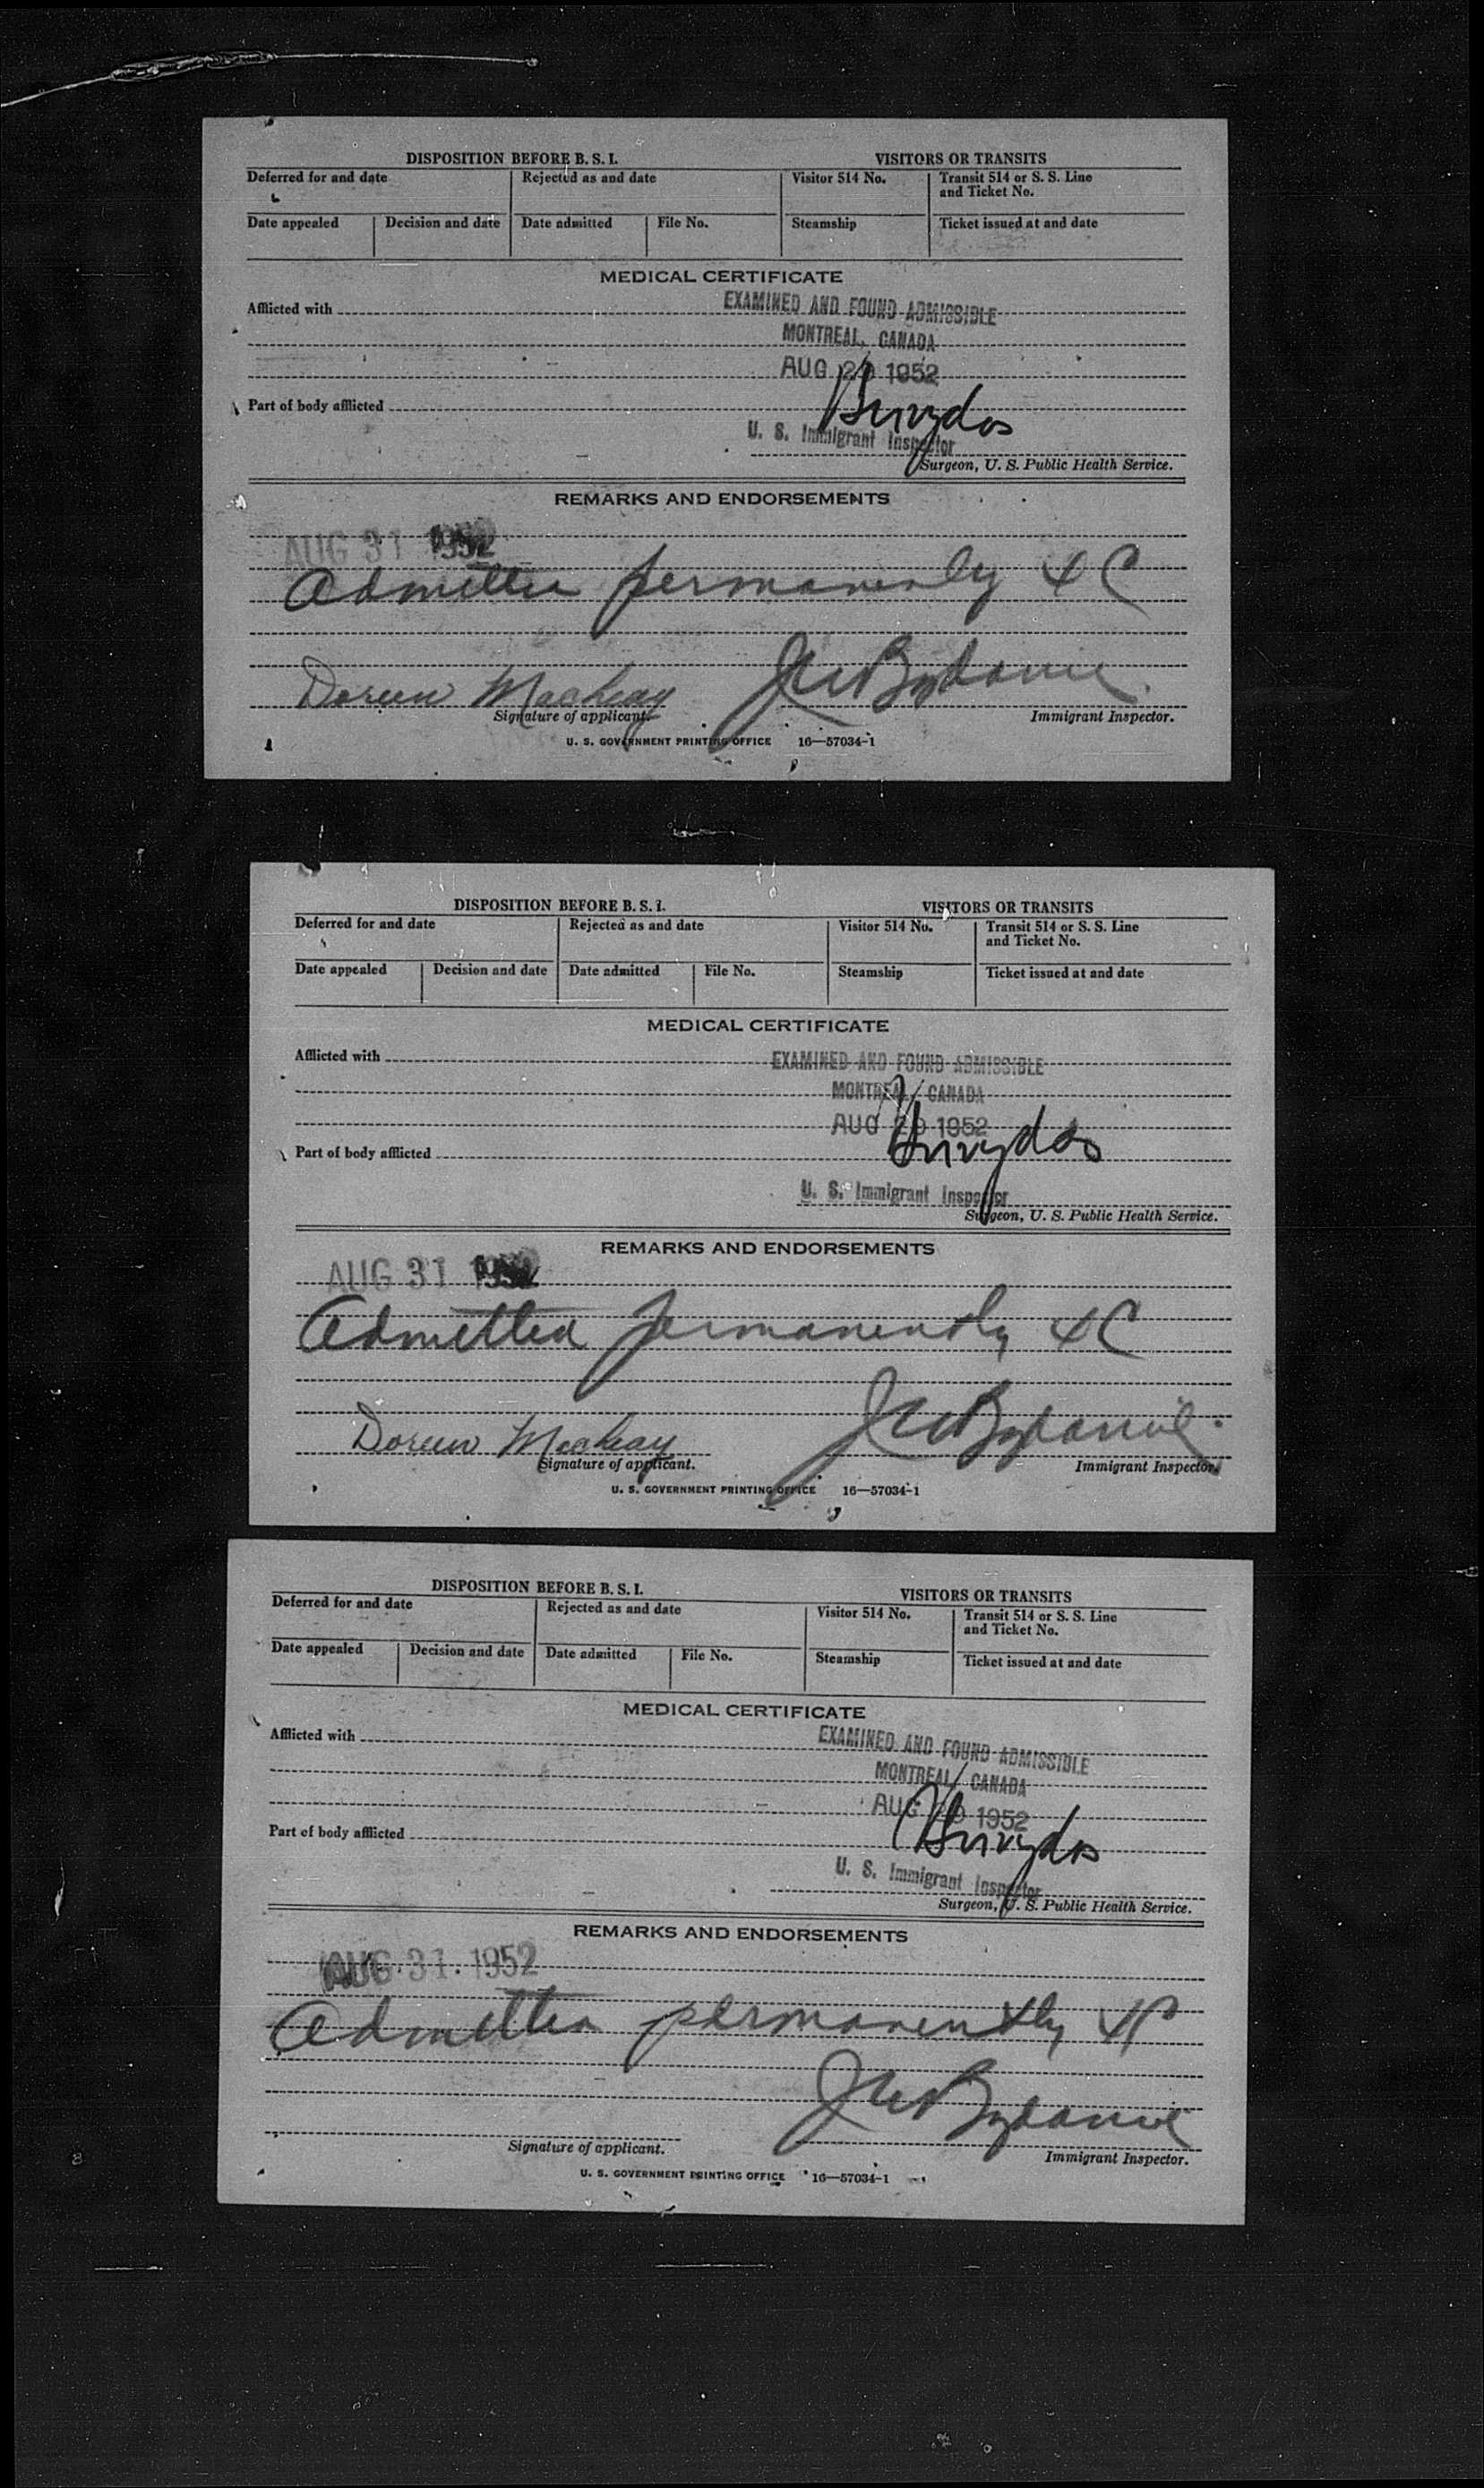 DISPOSITION BEFORE B. S. I. VISITORS OR TRANSITS
Deferred for and date Rejected as and date Visitor 514 No. Transit 514 or S. S. Line and Ticket No.
Date appealed Decision and date Date admitted File No. Steamship Ticket issued at and date
MEDICAL CERTIFICATE
Afflicted with EXAMINED AND FOUND ADMISSIBLE
MONTREAL, CANADA
AUG 20 1952
Part of body afflicted
U. S. Immigrant Inspector
Surgeon, U. S. Public Health Service.
REMARKS AND ENDORSEMENTS
AUG 31 1952
Admitted permanently
Doreen
Signature of applicant. Immigrant Inspector.
U. S. GOVERNMENT PRINTING OFFICE 16—57034-1
DISPOSITION BEFORE B. S. I. VISITORS OR TRANSITS
Deferred for and date Rejected as and date Visitor 514 No. Transit 514 or S. S. Line and Ticket No.
Date appealed Decision and date Date admitted File No. Steamship Ticket issued at and date
MEDICAL CERTIFICATE
Afflicted with EXAMINED AND FOUND ADMISSIBLE
MONTREAL, CANADA
AUG 20 1952
Part of body afflicted
U. S. Immigrant Inspector
Surgeon, U. S. Public Health Service.
REMARKS AND ENDORSEMENTS
AUG 31 1952
Admitted permanently
Doreen
Signature of applicant. Immigrant Inspector.
U. S. GOVERNMENT PRINTING OFFICE 16—57034-1
DISPOSITION BEFORE B. S. I. VISITORS OR TRANSITS
Deferred for and date Rejected as and date Visitor 514 No. Transit 514 or S. S. Line and Ticket No.
Date appealed Decision and date Date admitted File No. Steamship Ticket issued at and date
MEDICAL CERTIFICATE
Afflicted with EXAMINED AND FOUND ADMISSIBLE
MONTREAL, CANADA
AUG 20 1952
Part of body afflicted
U. S. Immigrant Inspector
Surgeon, U. S. Public Health Service.
REMARKS AND ENDORSEMENTS
AUG 31 1952
Admitted permanently
Signature of applicant. Immigrant Inspector.
U. S. GOVERNMENT PRINTING OFFICE 16—57034-1